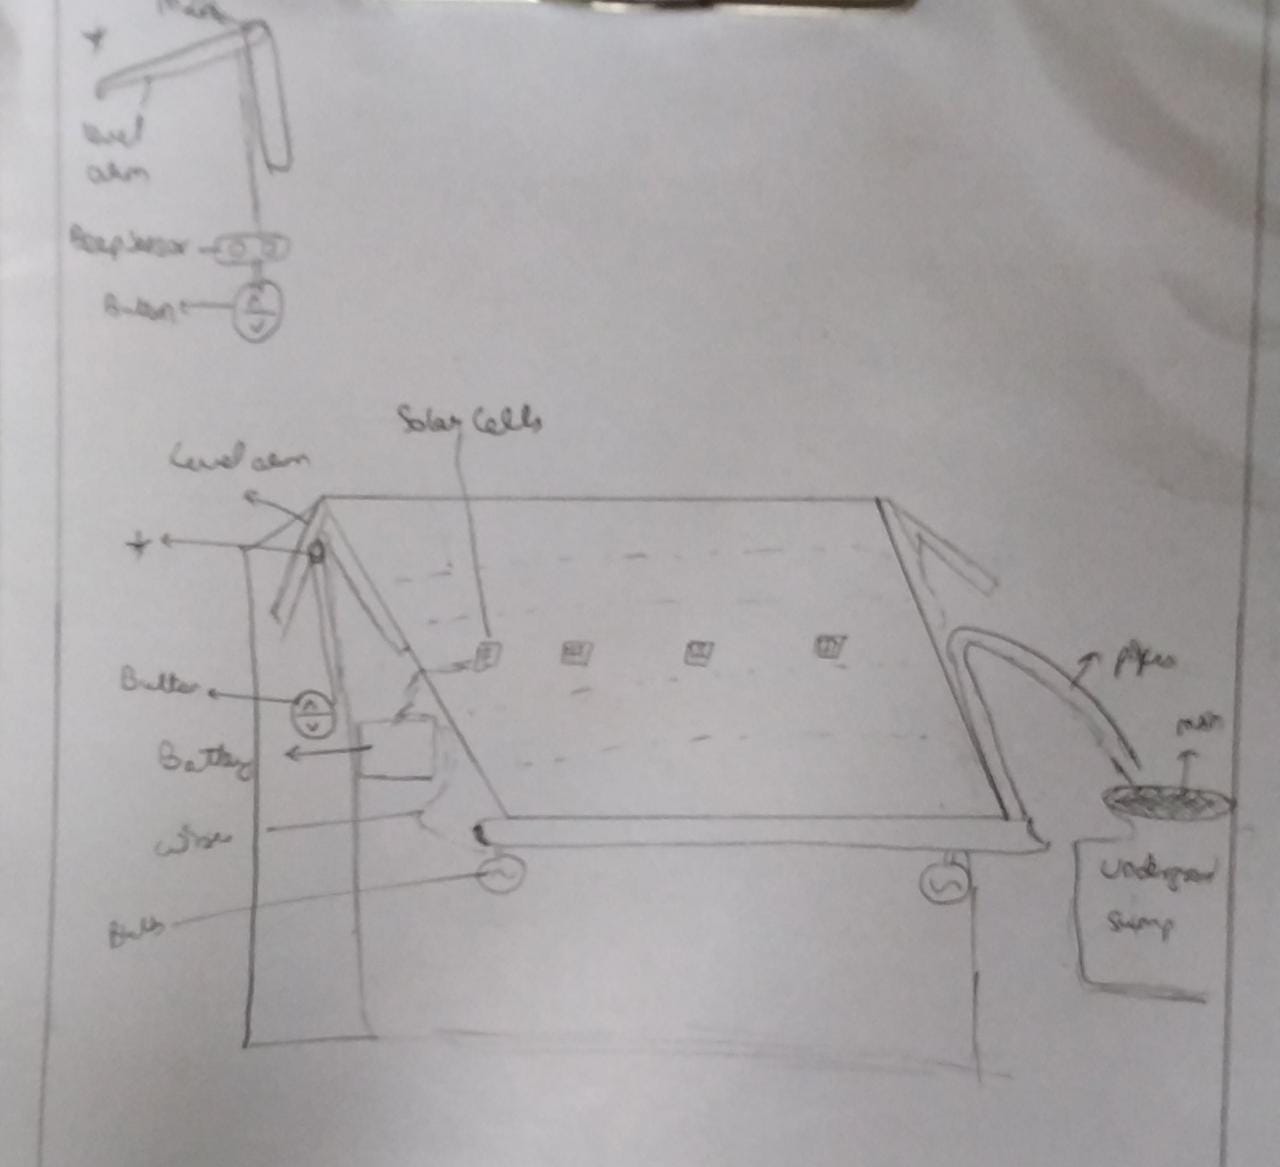 +
level
arm
Button
Solar Cells
Level arm
+
Button
Battery
wires
Bulb
pipes
underground
Sump